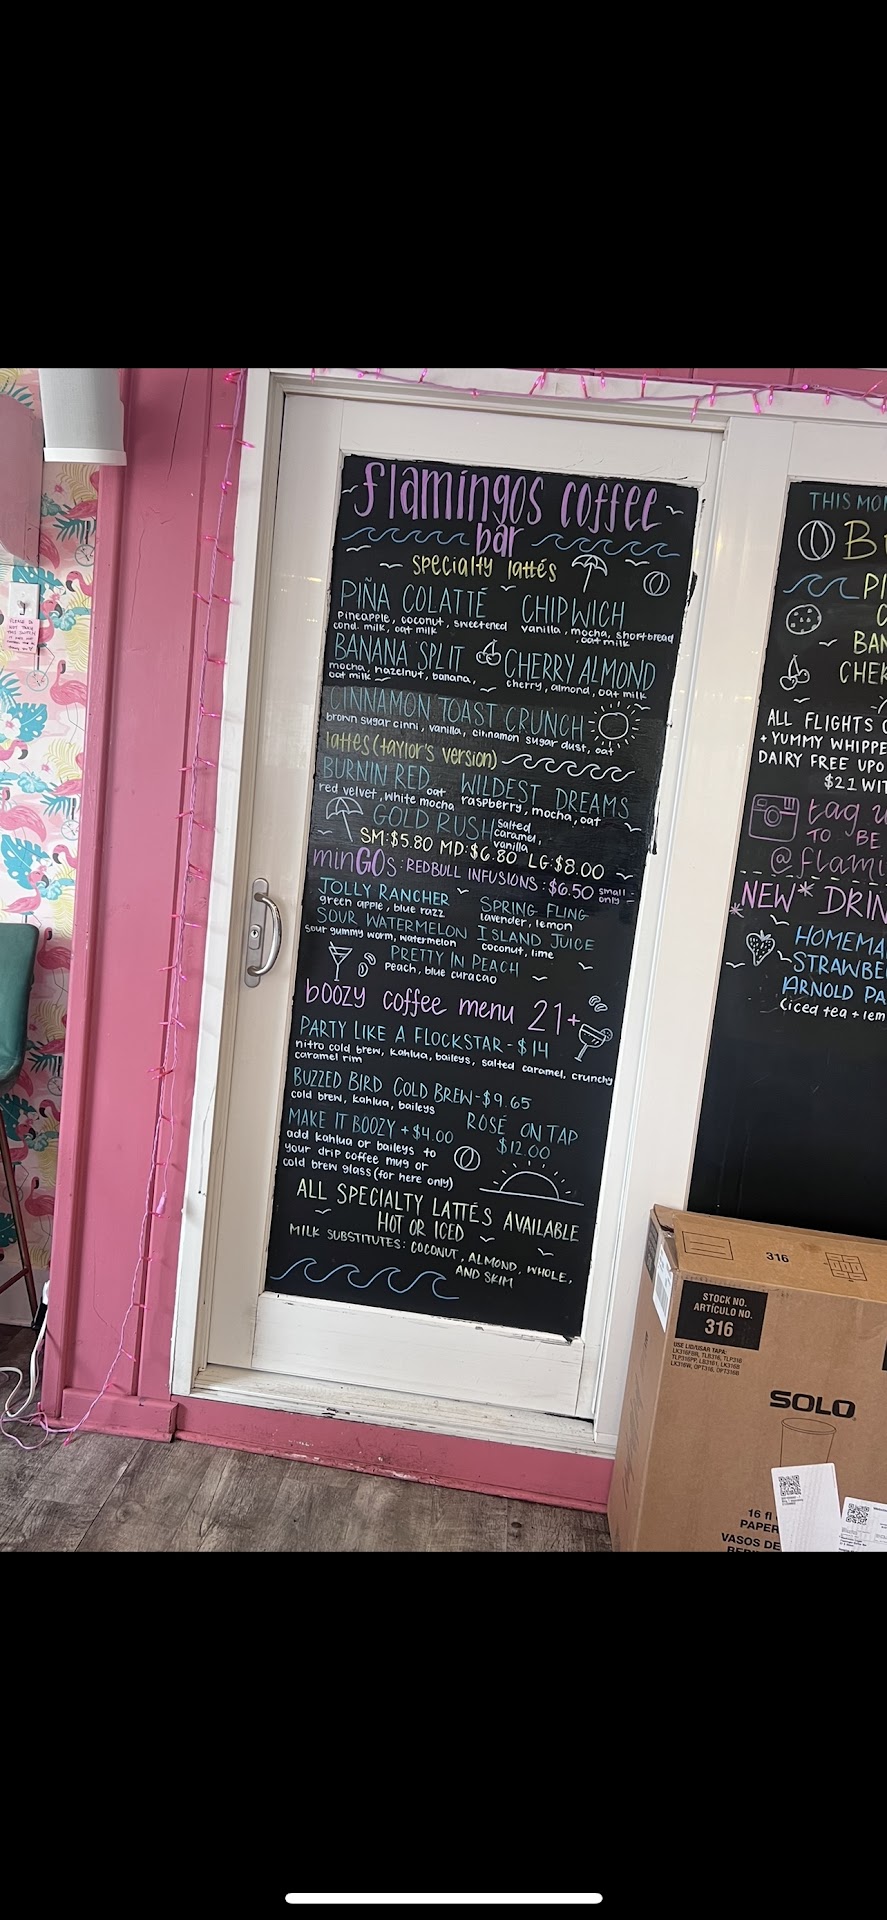 flamingos coffee
bar
specialty lattés
PIÑA COLATTÉ
pineapple, coconut, sweetened
cond. milk, oat milk
CHIPWICH
vanilla, mocha, shortbread
oat milk
BANANA SPLIT
mocha, hazelnut, banana,
oat milk
CHERRY ALMOND
cherry, almond, oat milk
CINNAMON TOAST CRUNCH
brown sugar cinni, vanilla, cinnamon sugar dust, oat
lattes (taylor's version)
BURNIN RED
red velvet, white mocha, oat
WILDEST DREAMS
raspberry, mocha, oat
GOLD RUSH
salted
caramel,
vanilla
SM: $5.80 MD: $6.80 LG: $8.00
minGOs: REDBULL INFUSIONS: $6.50 small
only
JOLLY RANCHER
green apple, blue razz
SPRING FLING
lavender, lemon
SOUR WATERMELON
sour gummy worm, watermelon
ISLAND JUICE
coconut, lime
PRETTY IN PEACH
peach, blue curacao
boozy coffee menu 21+
PARTY LIKE A FLOCKSTAR - $14
nitro cold brew, kahlua, baileys, salted caramel, crunchy
caramel rim
BUZZED BIRD COLD BREW - $9.65
cold brew, kahlua, baileys
MAKE IT BOOZY + $4.00
add kahlua or baileys to
your drip coffee mug or
cold brew glass (for here only)
ROSÉ ON TAP
$12.00
ALL SPECIALTY LATTÉS AVAILABLE
HOT OR ICED
MILK SUBSTITUTES: COCONUT, ALMOND, WHOLE,
AND SKIM
THIS MO
B
PI
C
BAN
CHER
ALL FLIGHTS
+ YUMMY WHIPPE
DAIRY FREE UPO
$21 WIT
tag u
TO BE
@flami
*NEW* DRIN
HOMEMA
STRAWBE
ARNOLD PA
(iced tea + lem
316
STOCK NO.
ARTÍCULO NO.
316
USE LID/USAR TAPA:
SOLO
16 fl
PAPER
VASOS DE